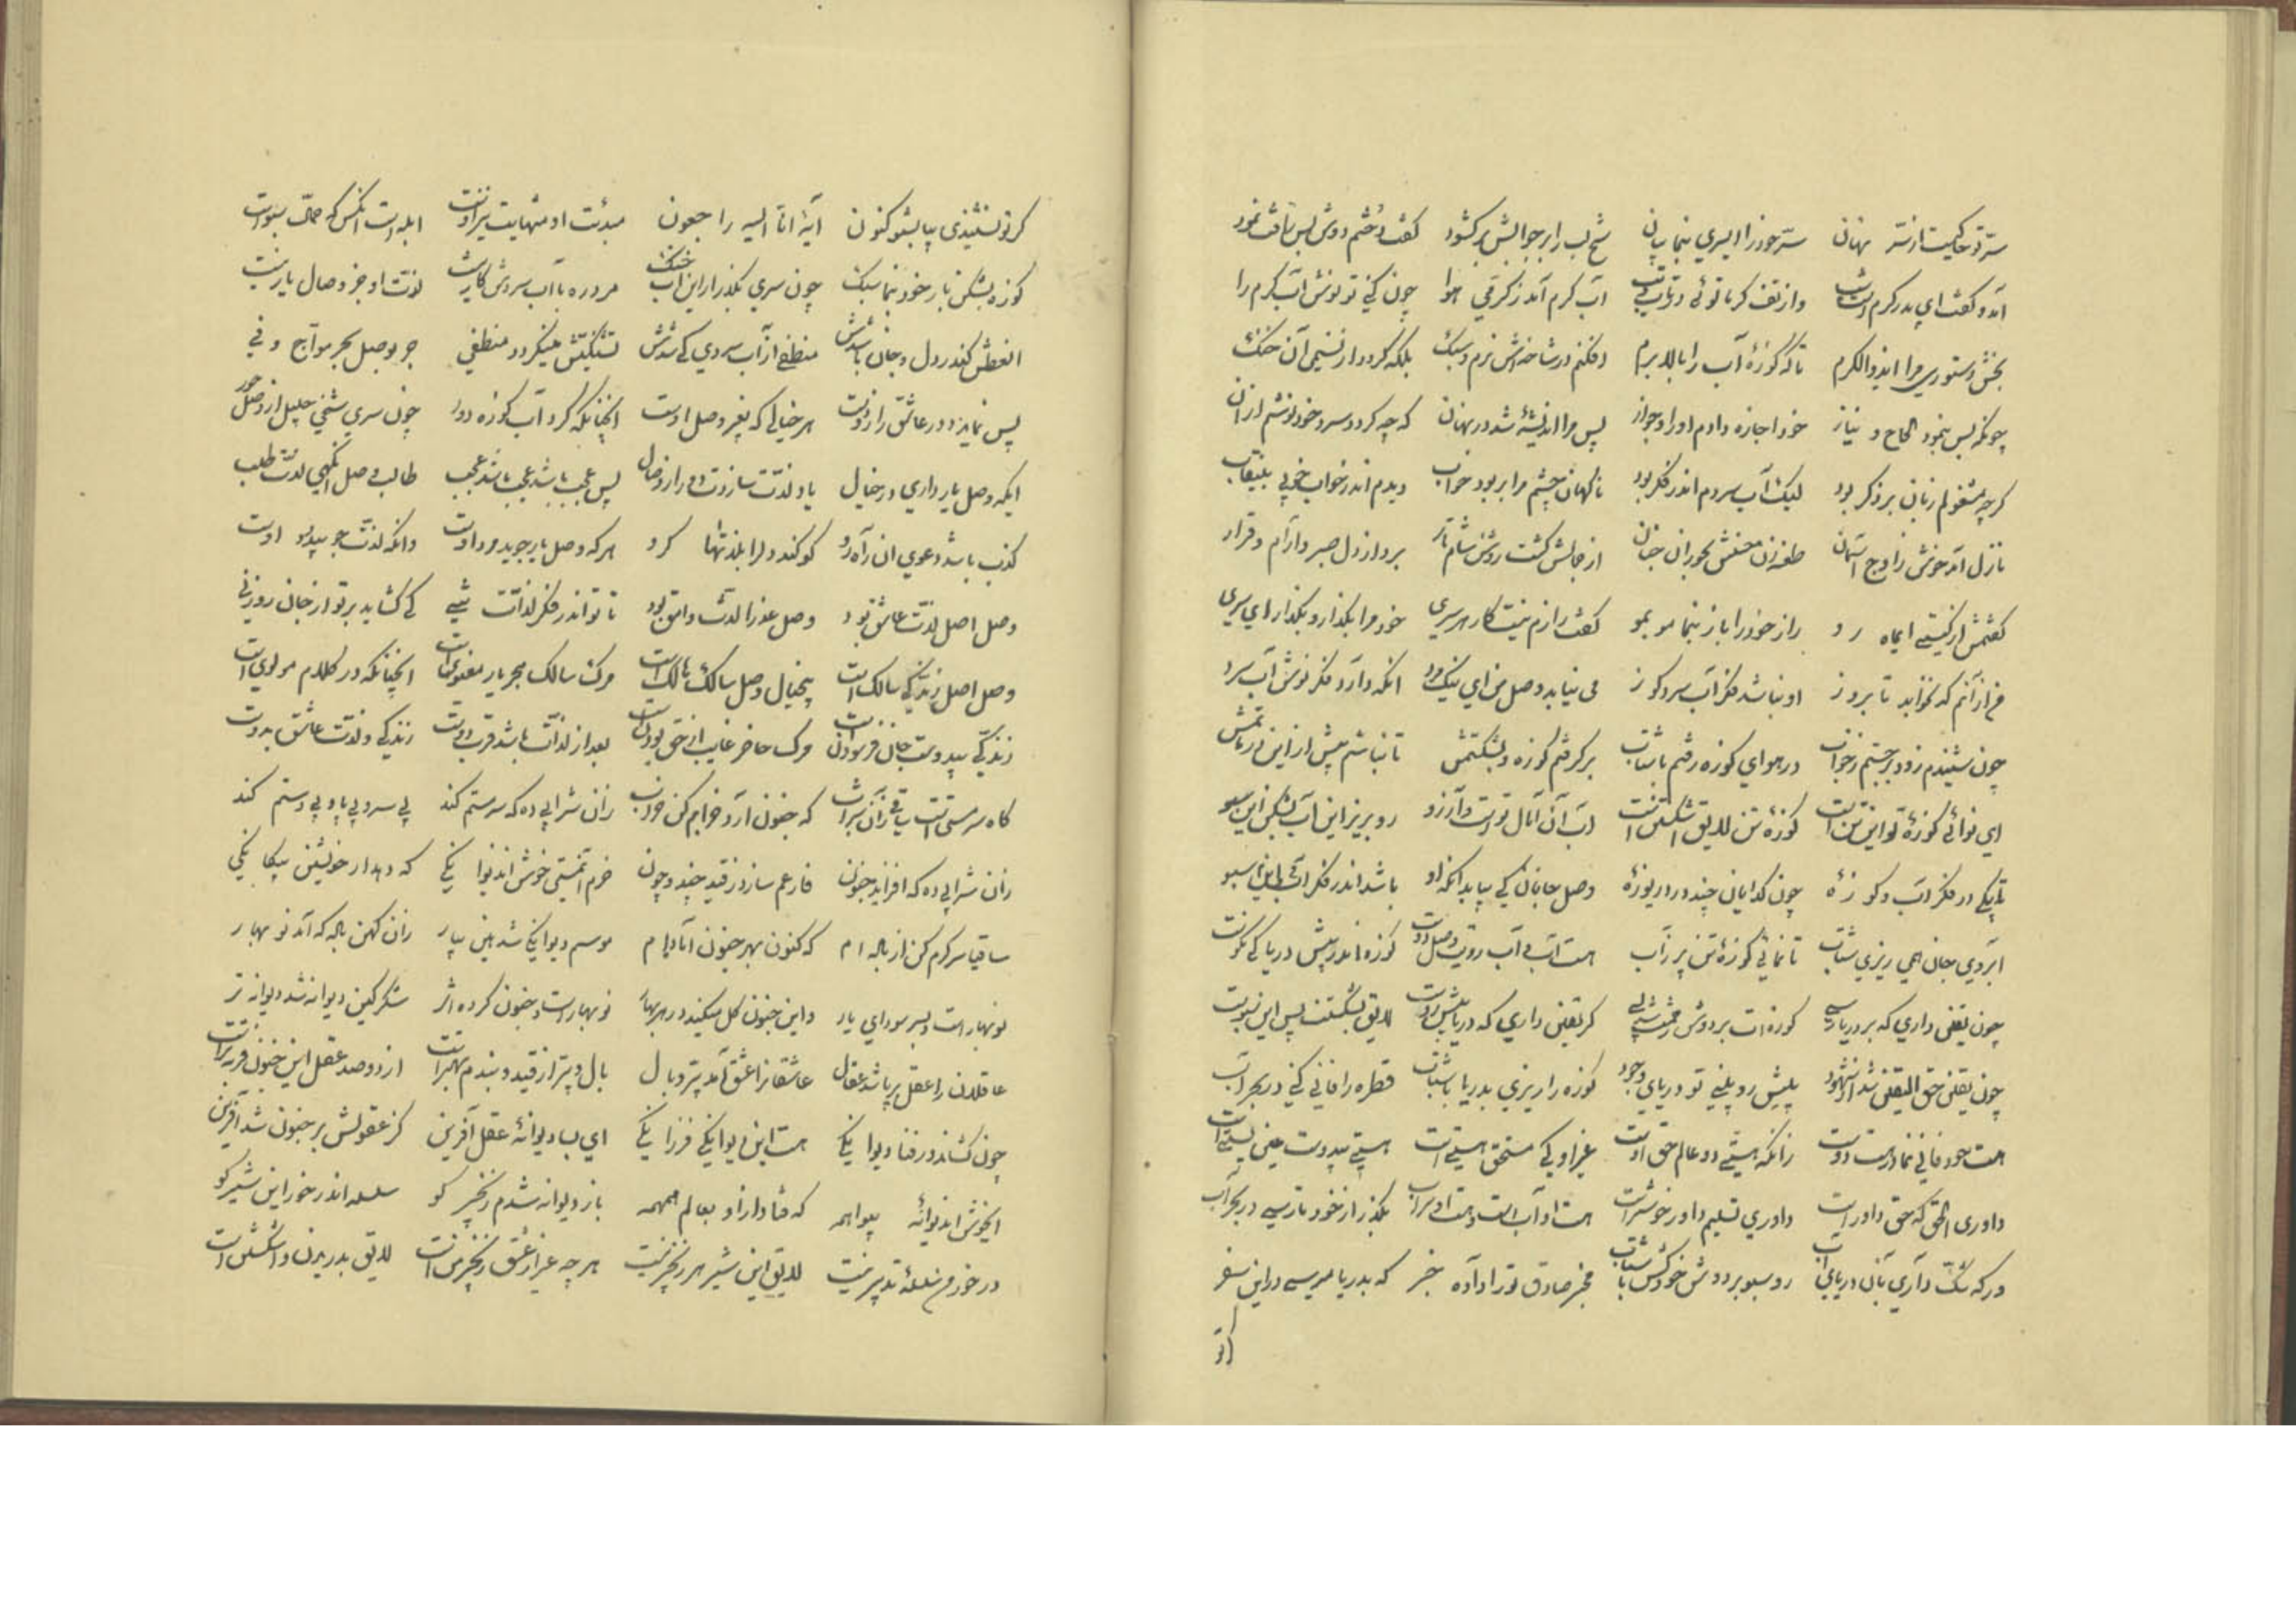 سرّ تو حاکیست از سرّ نهان سرّ خود را ای سری بنما بیان شیخ لب را بر جوابش بر گشود گفت دخترم دوش بس شافت نمود
آمد و گفت ای پدر گرم است شب واز تف گرما توئی در تاب و تب آب گرم آمد ز گرمی هوا چون کنی تو نوش آب گرم را
بخش دستوری مرا ای ذوالکرم تا که کوزهٔ آب را بالا برم افکنم در شاخه‌اش نرم و سبک بلکه گردد از نسیمی آن خنک
چونکه بس بنمود الحاح و نیاز خود اجازه دادم او را و جواز پس مرا اندیشهٔ شد در نهان که چه گردد سرد خود نوشم از آن
گرچه مشغولم زبان بر ذکر بود لیک آب سردم اندر فکر بود ناگهان چشم مرا بربود خواب دیدم اندر خواب خوبی بینقاب
نازل آمد خوش ز اوج آسمان طعنه زن حسنش بحوران جنان از جمالش گشت روشن شام تار برد از دل صبر و آرام و قرار
گفتمش از کیستی ای ماه رو راز خود را باز بنما مو بمو گفت رازم نیست کار هر سری خود مرا بگذار و بگذر ای سری
من از آنم که نخوابد تا بروز او نباشد فکر آب سرد کوز می نیابد وصل من ای نیک مرد آنکه دارد فکر نوش آب سرد
چون شنیدم زود برجستم ز خواب در هوای کوزه رفتم با شتاب بر گرفتم کوزه و بشکستمش تا نباشم بیش از این در تابشش
ای نوائی کوزهٔ تو این تن است کوزهٔ تن لایق اشکستن است آب آن آمال تو است و آرزو رو بریز این آب بشکن این سبو
تا بکی در فکر آب و کوزهٔ چون گدایان چند در دریوزهٔ وصل جانان کی بیابد آنکه او باشد اندر فکر آب این سبو
آبروی جان همی ریزی شتاب تا نمائی کوزهٔ تن پر ز آب هست آب بی آب رویت وصل دوست کوزه اندر پیش دریا کی نکوست
چون یقین داری که بر دریا رسی کوزه‌ات بر دوش گر یقین داری که دریا پیش روست لایق بشکستنست پس این سبوست
چون یقین حق الیقین شد از شهود پیش رو بینی تو دریای وجود کوزه را ریزی بدریا با شتاب قطره را فانی کنی در بحر آب
هست خود فانی نما در هست دوست زانکه هستی دو عالم حق اوست غیر او کی مستحق هستی است هستی بیدوست عین نیستی است
داوری الحق که حق داور است داوری تسلیم داور خوشتر است هست او آب است و هست او سراب بگذر از خود تا رسی در بحر آب
ور که شک داری بآن دریای آب رو سبو بر دوش خود کش با شتاب مخبر صادق تو را داده خبر که بدریا میرسی در این سفر
گر تو نشنیدی بیا بشنو کنون آیهٔ انّا الیه راجعون مبدئت او منتهایت نیز اوست ابله است آنکس که حمال سبوست
کوزه بشکن بار خود بنما سبک چون سری بگذر از این آب خنک مرد ره با آب سردش کار نیست لذت او جز وصال یار نیست
العطش کندر دل و جان باشدش منطفی از آب سردی کی شدش تشنگیش مینگردد منطفی جز بوصل بحر مواج وفی
پس نماید دور عاشق را ز دوست هر خیالی که بغیر وصل اوست آنچنانکه کرد آب کوزه دور چون سری شیخی جلیل از وصل حور
ایکه وصل یار داری در خیال یاد لذت سازدت دور از وصال پس عجب باشد عجب باشد عجب طالب وصل آنگهی لذت طلب
کذب باشد دعوی آن راه رو کو کند دل را بلذتها گرو هر که وصل یار جوید مرد اوست وانکه لذت جو بود
وصل اصل لذت عاشق بود وصل عذرا لذت وامق بود تا تو اندر فکر لذات تنی کی گشاید بر تو از جان روزنی
وصل اصل زندگی سالک است بیخیال وصل سالک هالک است مرگ سالک هجر یار معنویست آنچنانکه در کلام مولوی است
زندگی بیدوست جان فرسودن است مرگ حاضر غایب از حق بودن است بعد از لذات باشد قرب دوست زندگی و لذت عاشق بدوست
گاه سرمستی است ساقی زان شراب که جنون آرد خرابم کن خراب زان شرابی ده که سرمستم کند بی سر و بی پا و بی دستم کند
زان شرابی ده که افزاید جنون فارغم سازد ز قید چند و چون خرم آنمستی خوش آندیوانگی که دهد از خویشتن بیگانگی
ساقیا سر گرم کن از باده‌ام که کنون بهر جنون آماده‌ام موسم دیوانگی شد هین بیار زان کهن باده که آمد نو بهار
نوبهار است و بسر سودای یار واین جنون گل میکند در هر بهار نوبهار است و جنون کرده اثر سنگر کین دیوانه شد دیوانه تر
عاقلان را عقل بر پا شد عقال عاشقانرا عشق آمد پر و بال بال و پر از قید و بندم بهتر است از دو صد عقل این جنون فربه تر است
چون کشاند در فنا دیوانگی هست این دیوانگی فرزانگی ای بسا دیوانهٔ عقل آفرین کز عقولش بر جنون شد آفرین
ایخوش آندیوانهٔ بیواهمه که فتاد از او بعالم همهمه باز دیوانه شدم زنجیر کو سلسله اندر خور این شیر کو
در خور من سلسلهٔ تدبیر نیست لایق این شیر هر زنجیر نیست هر چه غیر از عشق زنجیر منست لایق بدریدن و اشکستن است